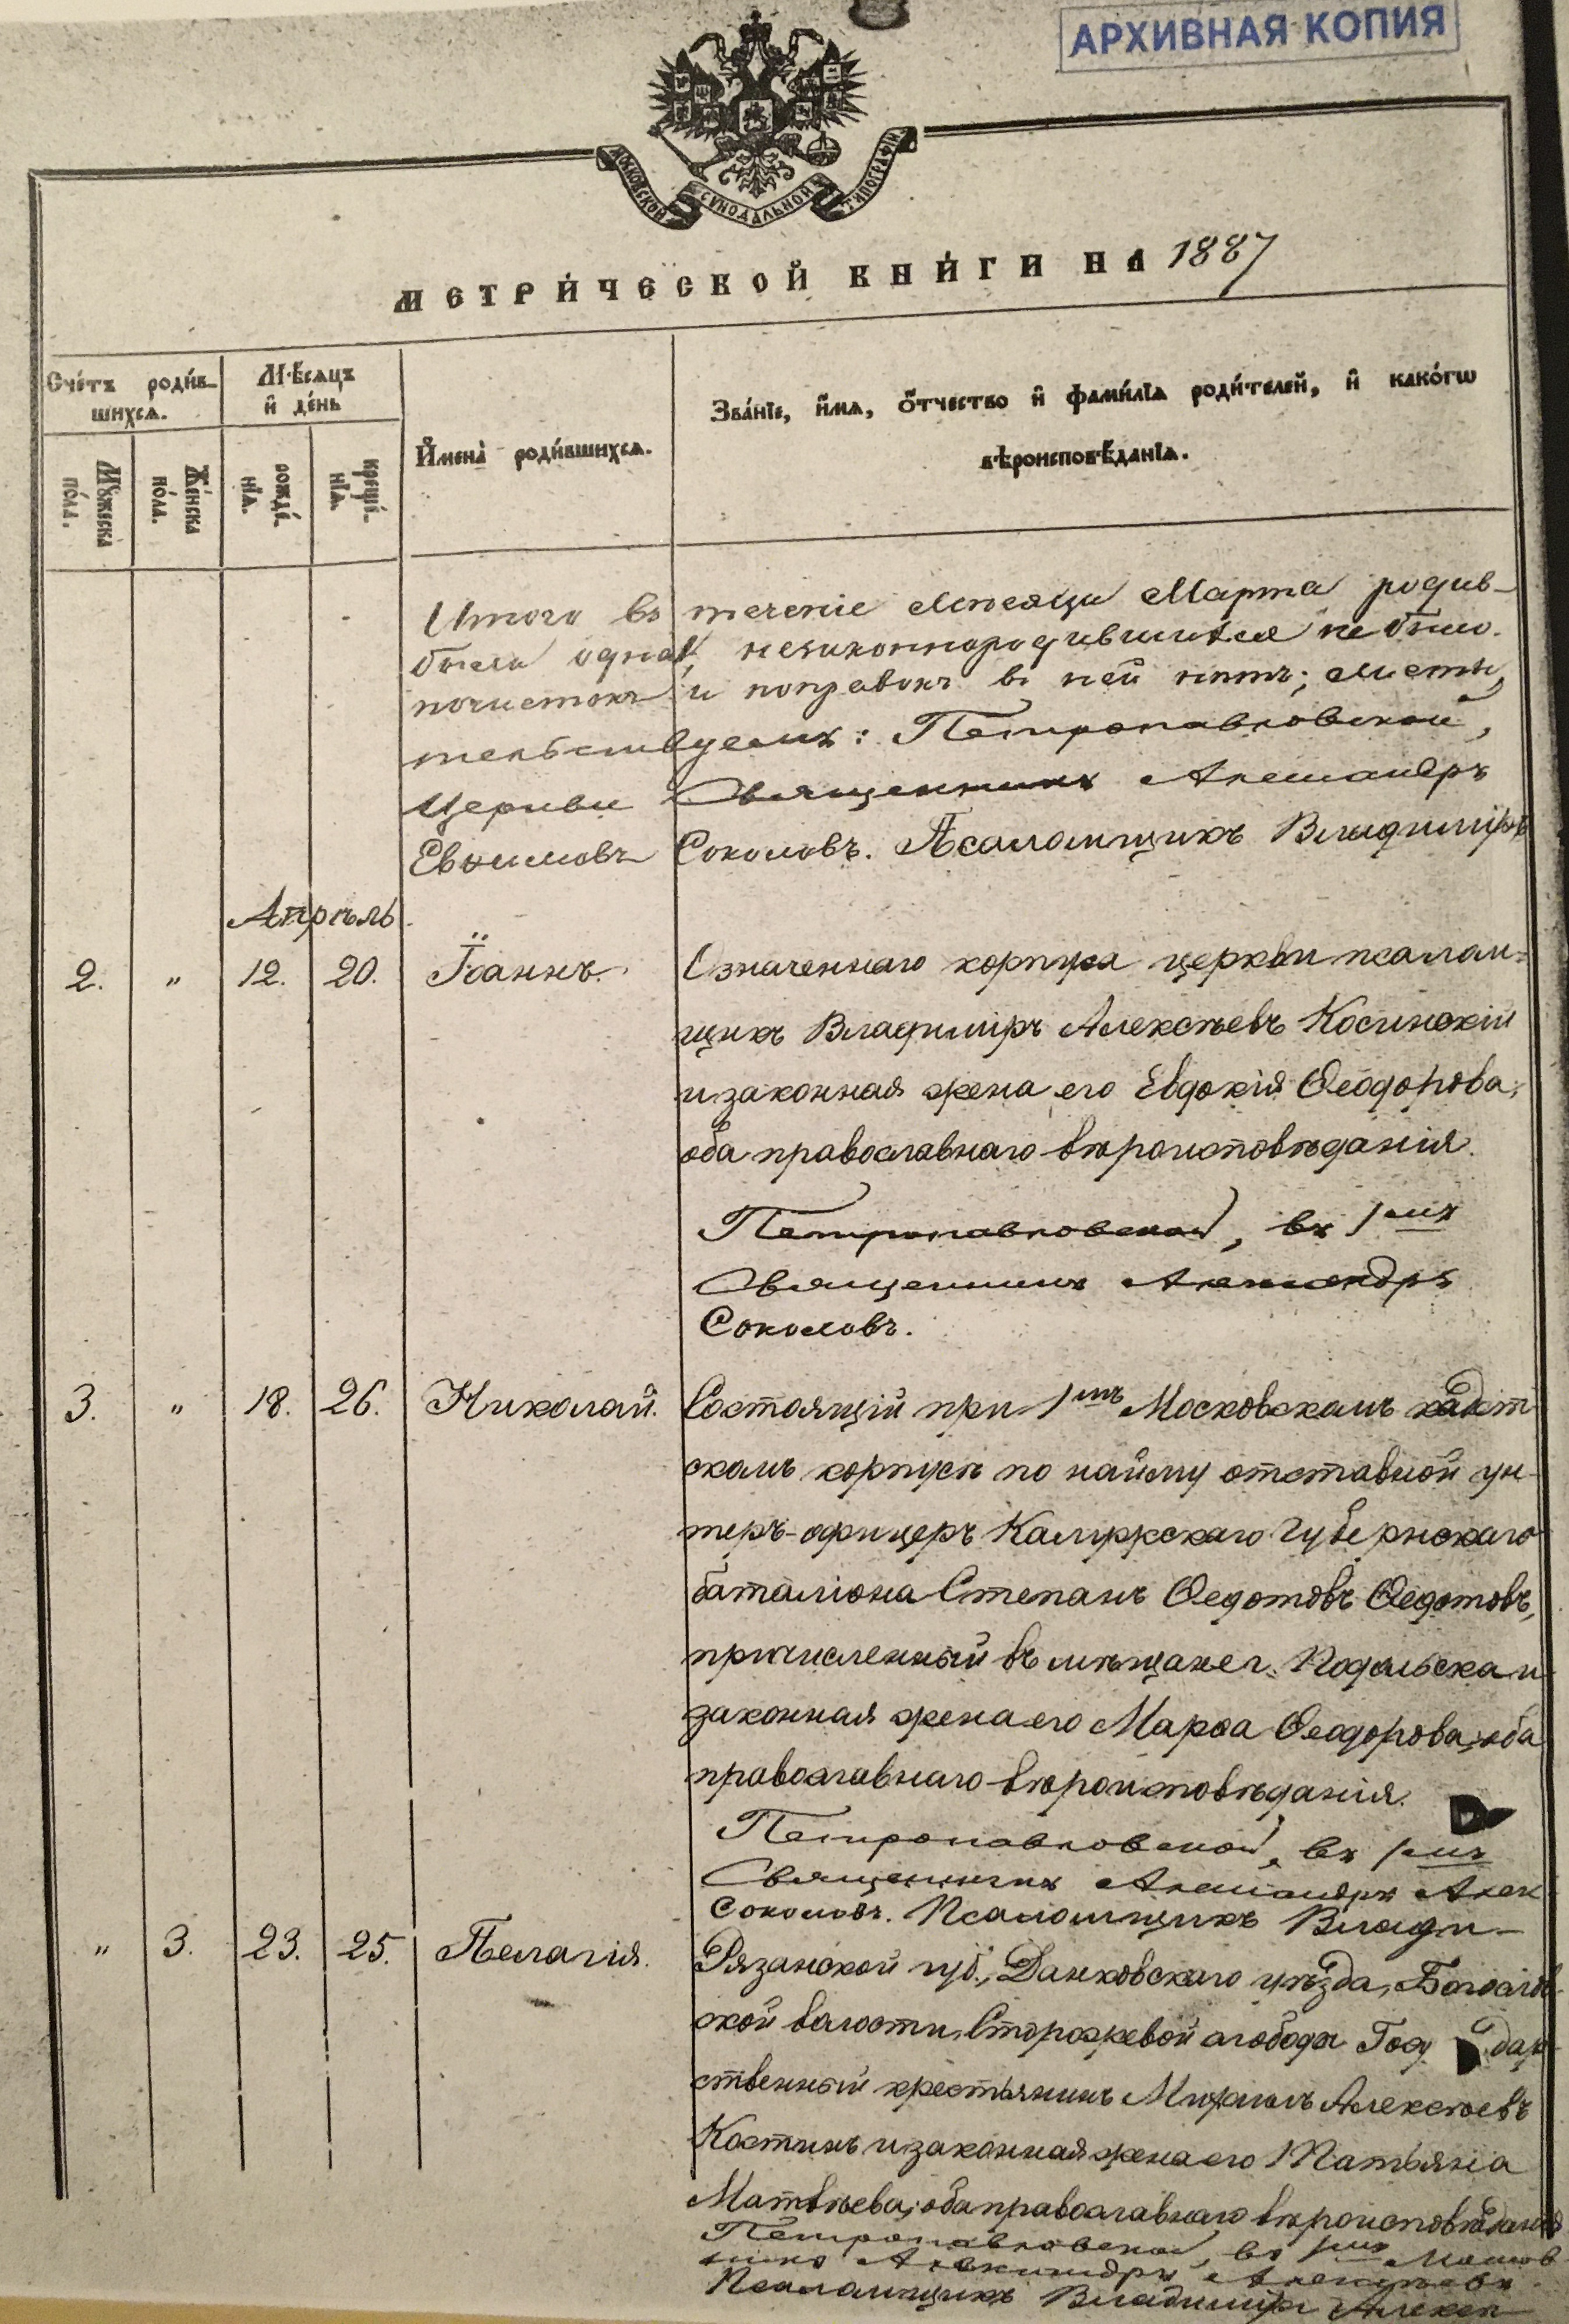 АРХИВНАЯ КОПИЯ
МОСКОВСКОЙ СѴНОДАЛЬНОЙ ТИПОГРАФІИ
МЕТРИ́ЧЕСКОЙ КНИ́ГИ НА 1887
Сче́тъ роди́в-
шихсѧ.
М́ѣсѧцъ
и҆ де́нь
И҆мена̀ роди́вшихсѧ.
Зва́нїе, и҆́мѧ, ѻ҆́тчество и҆ фами́лїѧ роди́телей, и҆ како́гѡ
вѣроисповѣ́данїѧ.
Мꙋ́жеска
по́ла.
Же́нска
по́ла.
рожде́-
нїѧ.
креще́-
нїѧ.
Итого въ теченіе мѣсяца Марта родив-
была одна, незаконнородившихся не было.
почистокъ и поправокъ въ ней нѣтъ; листы,
тельствуемъ: Петропавловской,
Церкви Священникъ Александръ
Евѳимовъ Соколовъ. Псаломщикъ Владиміръ
Апрѣль
2. „ 12. 20. Іоаннъ. Означеннаго корпуса церкви псалом-
щикъ Владиміръ Алексѣевъ Косинскій
и законная жена его Евдокія Ѳеодорова,
оба православнаго вѣроисповѣданія.
Петропавловской, въ 1мъ
Священникъ Александръ
Соколовъ.
3. „ 18. 26. Николай. Состоящій при 1мъ Московскомъ кадет
скомъ корпусѣ по найму отставной ун-
теръ-офицеръ Калужскаго Губернскаго
баталіона Степанъ Ѳедотовъ Ѳедотовъ,
причисленный въ мѣщане г. Подольска и
законная жена его Марѳа Ѳеодорова, оба
православнаго вѣроисповѣданія.
Петропавловской, въ 1мъ
Священникъ Александръ Алек
Соколовъ. Псаломщикъ Влади-
„ 3. 23. 25. Пелагія. Рязанской губ., Данковскаго уѣзда,
ской волости, Сторожевой слободы Госу дар-
ственный крестьянинъ Михаилъ Алексѣевъ
Костинъ и законная жена его Татьяна
Матвѣева; оба православнаго вѣроисповѣданія
Петропавловской, въ 1мъ Москов
Александръ
Псаломщикъ Владиміръ Алексѣ